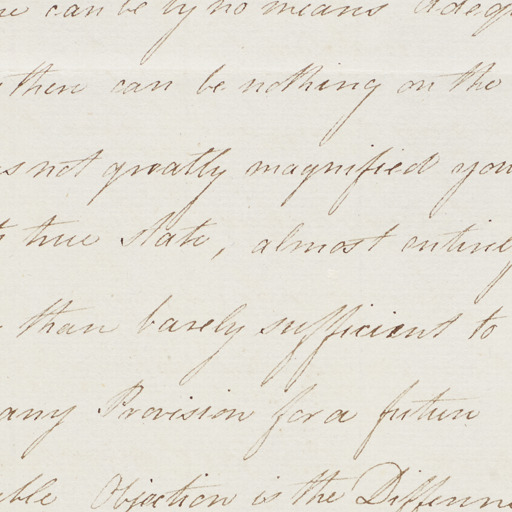 can be by no means
then can be nothing on the
not greatly magnified you
true state, almost entirely
than barely sufficient to
any Provision for a future
Objection is the Differen